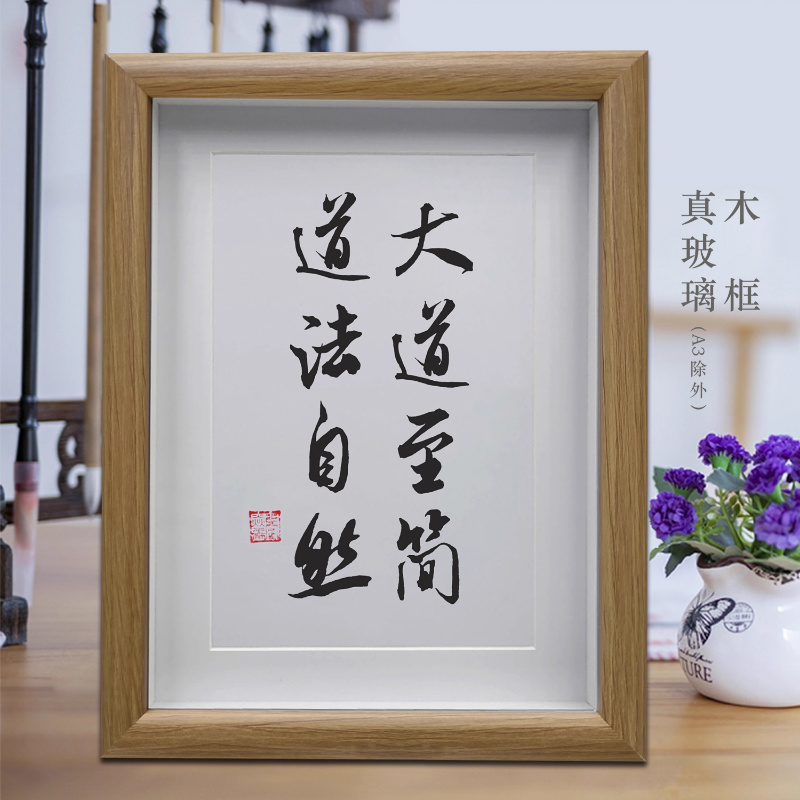 大道至简
道法自然
木框
真玻璃(A3除外)
TURE